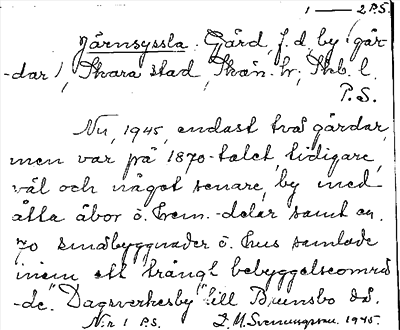 1 — 2 P.S.
Järnsyssla. Gård, f. d. by (går
-dar), Skara stad, Skån. hr, Skb. l.
P. S.
Nu, 1945, endast två gårdar,
men var på 1870-talet, tidigare,
väl och något senare, by med
åtta åbor o. hem. -delar samt ca.
70 småbyggnader o. hus samlade
inom ett trångt bebyggelseområ
-de. "Dagsverkesby" till Brunsbo
N:r 1 P.S. Svenungsson. 1945.